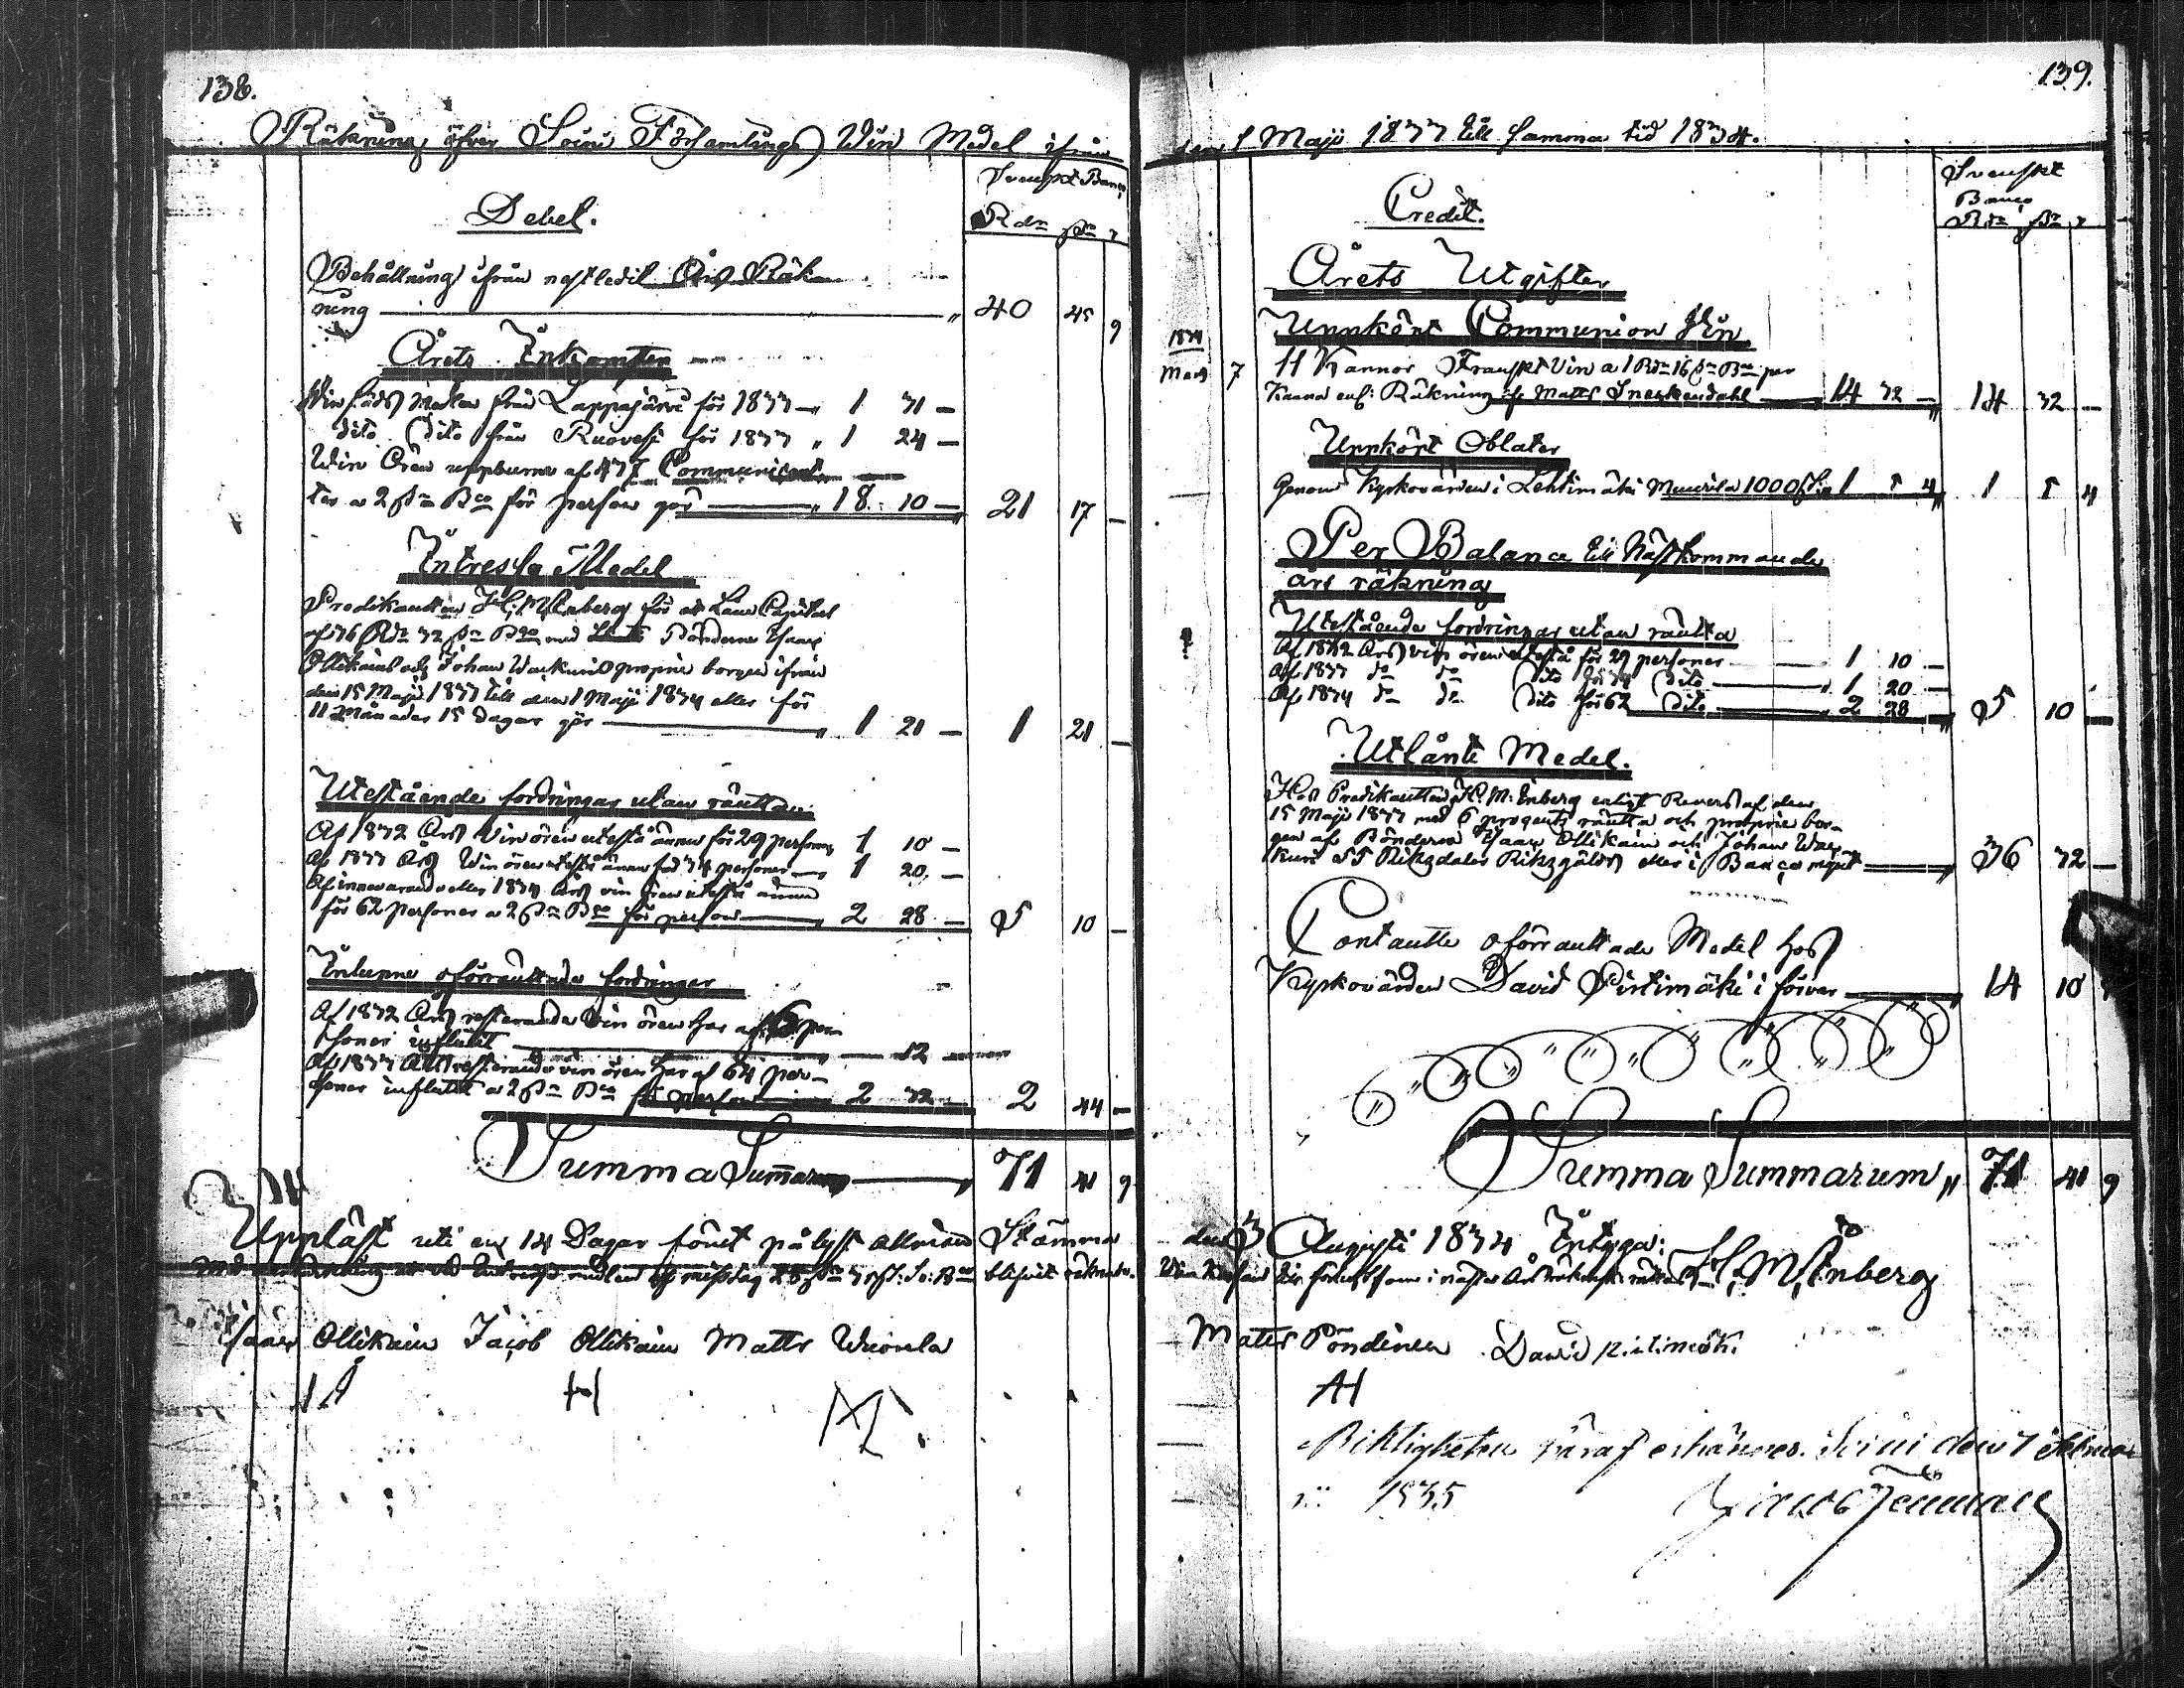 138.
Räkning öfver Soini Församlings Win Medel ifrån
Svenskt Banco
Debet.
Rdr sk r
Behållning ifrån nestledit Års Räkn
ning 40 45 9
Årets Inkomter
Win Säds Medlen från Lappajärvi för 1833 " 1 31 —
dito dito från Ruovesi för 1833 " 1 24 —
Win Ören uppburne af 437 Communican
ter a 2 sk Bco för person gör " 18 10 — 21 17 —
Intresse Medel
Predikanten H: M: Enberg för et Låne Capital
af 36 Rdr 32 sk Bco med Bönderne Isaac
Ollikains och Johan Wackuris proprie borgen ifrån
den 15 Maji 1833 till den 1 Maji 1834 eller för
11 Månader 15 Dagar gör " 1 21 — 1 21 —
Utestående fordringar utan räntta
Af 1832 Års Vin ören utestå ännu för 29 personer 1 10 —
Af 1833 Års Win ören utestå ännu för 34 personer 1 20 —
Af innevarande eller 1834 Års vin ören utestå ännu
för 62 personer a 2 sk Bco för person 2 28 — 5 10 —
Inlupne oförränttade fordringar
Af 1832 Års resterande Vin ören har af 6 per
soner influtit 12
Af 1833 Års resterande vin ören har af 64 per-
soner influtit a 2 sk Bco för person 2 32 — 2 44 —
Summa Summarum " 71 41 9
Uppläst uti en 14 Dagar förut pålyst allmän Stämma
Isaac Ollikain Jacob Ollikain Matts Wuorela
139.
den 1 Maji 1833 till samma tid 1834.
Svenskt
Banco
Rdr sk r
Credit.
Årets Utgifter
Uppkört Communion Vin
1834
Mars 7 11 Kannor Franskt Vin a 1 Rdr 16 sk Bco per
Kanna enl: Räkning af Matts Sneckendahl 14 32 — 14 32 —
Uppkört Oblater
Genom Kyrkovärden i Lehtimäki 1000 st: 1 5 4 1 5 4
Per Balance till Nästkommande
års räkning
Utestående fordringar utan räntta
Af 1832 Års vin ören utestå för 29 personer 1 10 —
Af 1833 do do dito för 34 dito 1 20 —
Af 1834 do do dito för 62 dito 2 28 — 5 10 —
Utlånte Medel.
Hos Predikanten H: M: Enberg enligt Revers af den
15 Maji 1833 med 6 procents räntta och proprie bor-
gen af Bönderne Isaac Ollikain och Johan Wac
kuri 55 Riksdaler Riksgälds eller i Banco mynt 36 32 —
Contante oförränttade Medel hos
Kyrkovärden David Pirtimäki i förvar 14 10
Summa Summarum " 71 41 9
den 3 Augusti 1834 Intyga:
H. M. Enberg
Matts Pöndinen David Pirtimäki
Riktigheten häraf erkännes. Soini den 7 Februa
rii 1835